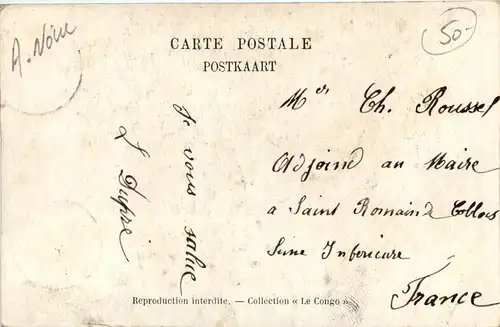 A. Voir
50-
CARTE POSTALE
POSTKAART
Mr Ch. Roussel
Adjoind au Maire
a Saint Romain
Seine Inferieure
France
Je vous salue
L Dupré
Reproduction interdite. — Collection « Le Congo »